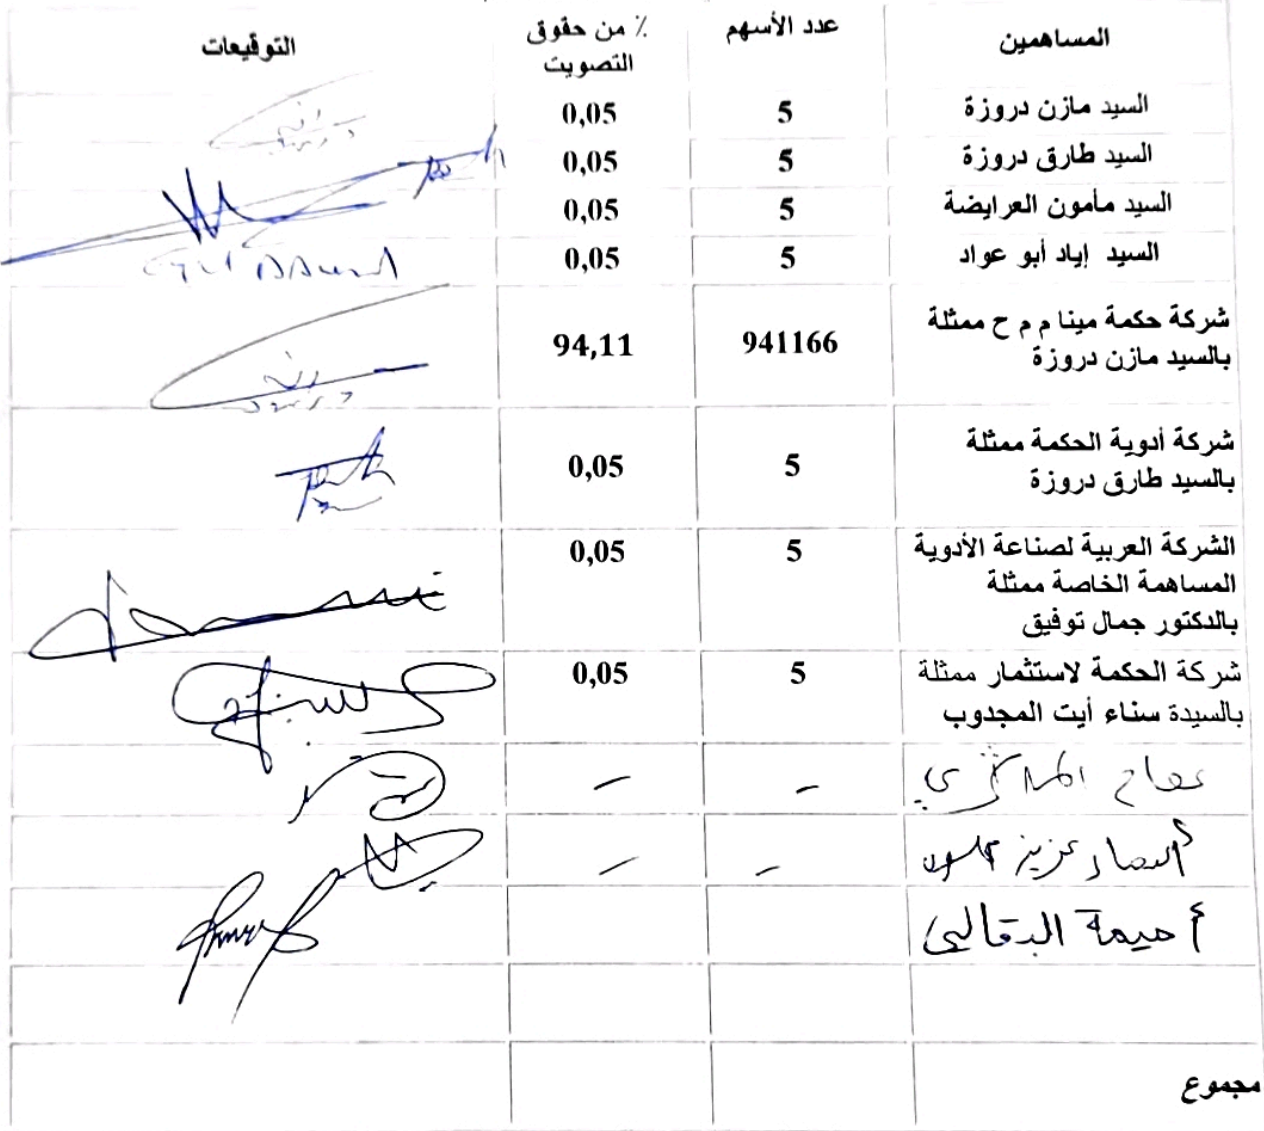 المساهمين عدد الأسهم ٪ من حقوق التصويت التوقيعات
السيد مازن دروزة 5 0,05
السيد طارق دروزة 5 0,05
السيد مأمون العرايضة 5 0,05
السيد إياد أبو عواد 5 0,05
شركة حكمة مينا م م ح ممثلة
بالسيد مازن دروزة 941166 94,11
شركة أدوية الحكمة ممثلة
بالسيد طارق دروزة 5 0,05
الشركة العربية لصناعة الأدوية 5 0,05
المساهمة الخاصة ممثلة
بالدكتور جمال توفيق
شركة الحكمة لاستثمار ممثلة 5 0,05
بالسيدة سناء أيت المجدوب
– –
عزيز – –
أميمة البقالي
مجموع